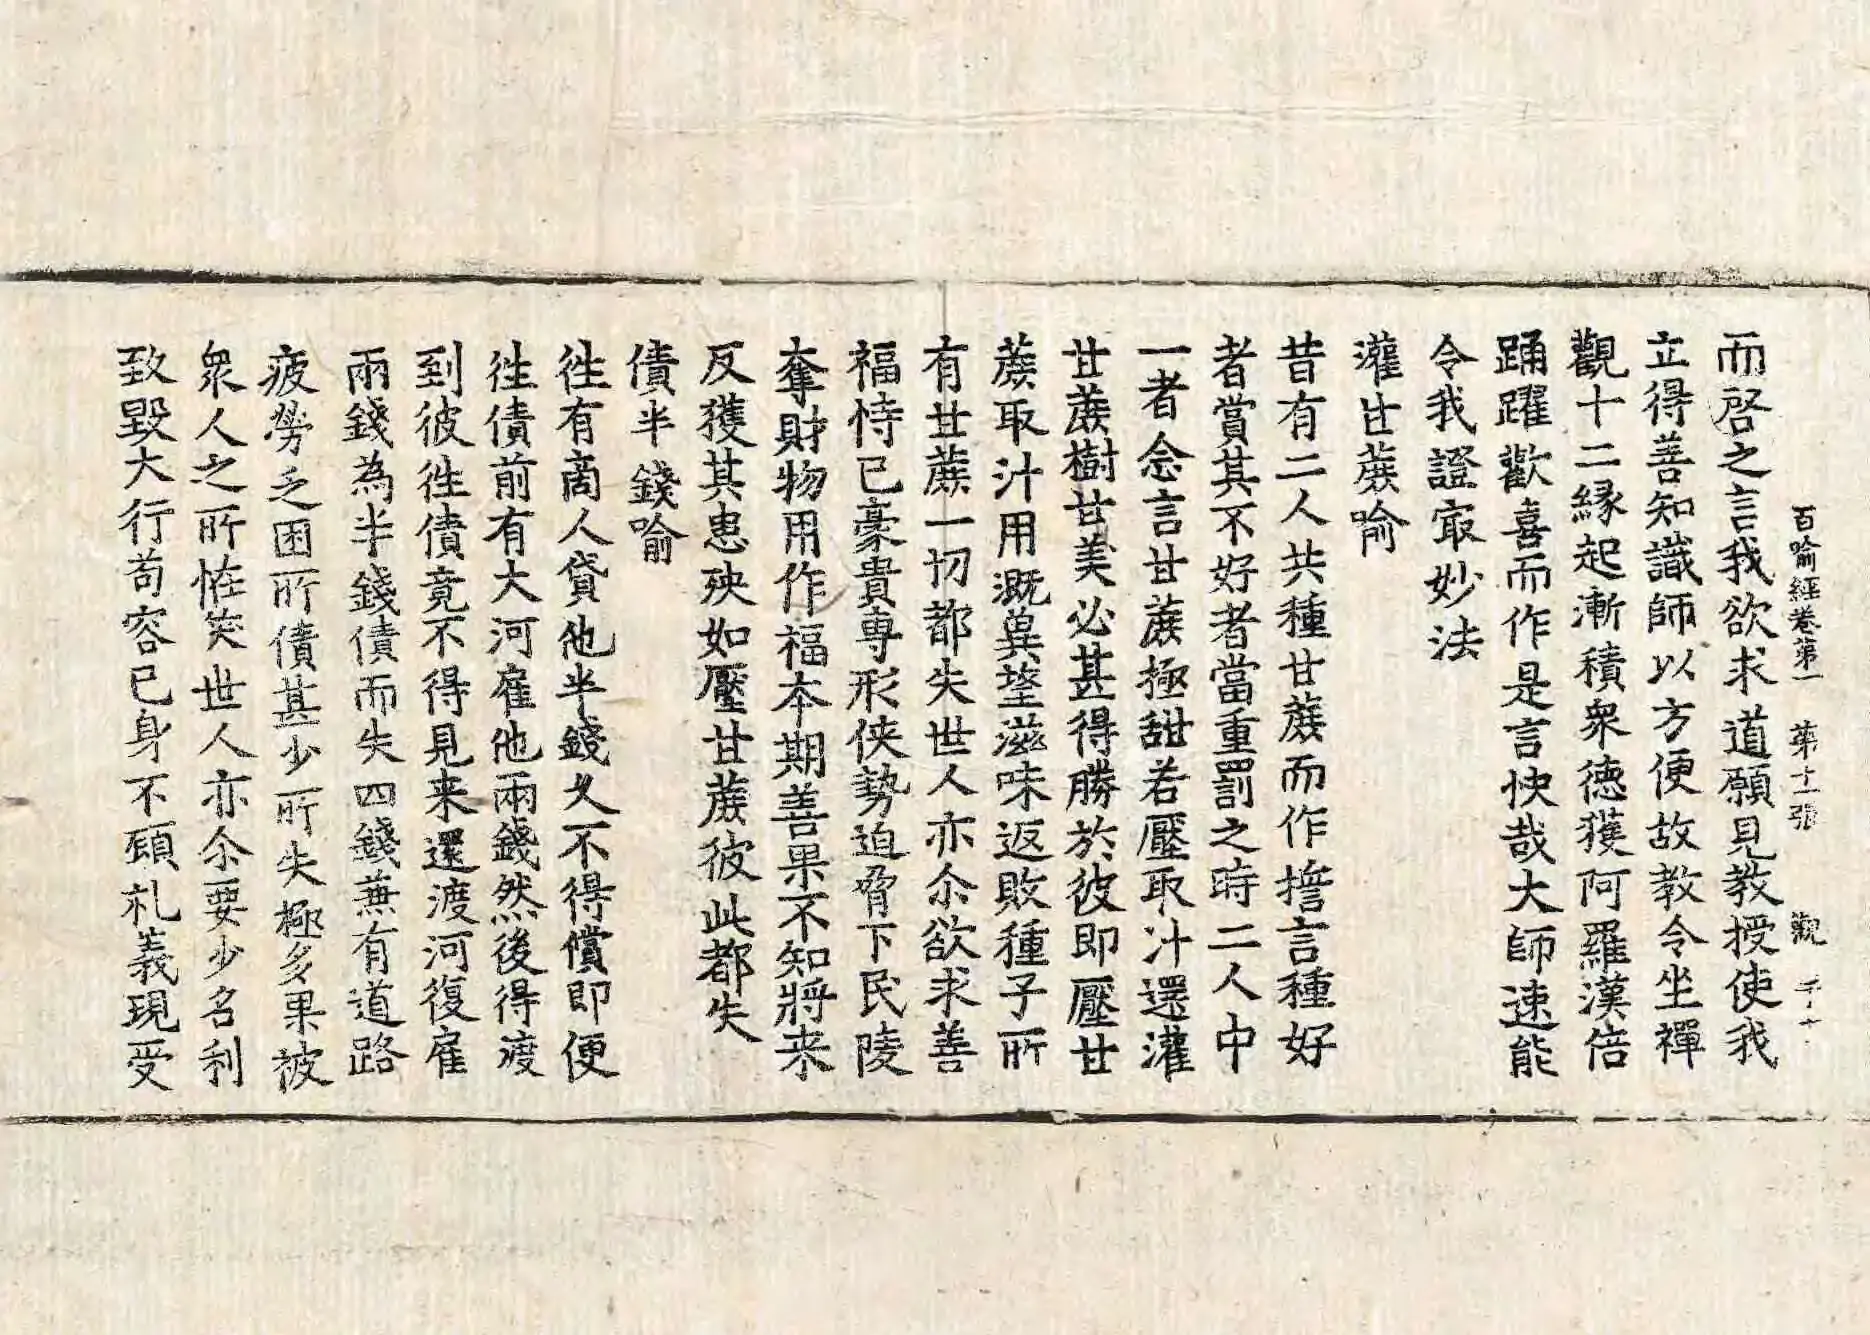 百喻經卷第一　第十一張　觀
而啓之言我欲求道願見教授使我
立得善知識師以方便故教令坐禪
觀十二緣起漸積衆德獲阿羅漢倍
踊躍歡喜而作是言快哉大師速能
令我證㝡妙法
灌甘蔗喻
昔有二人共種甘蔗而作擔言種好
者賞其不好者當重罰之時二人中
一者念言甘蔗極甜若壓取汁還灌
甘蔗樹甘美必甚得勝於彼即壓甘
蔗取汁用溉冀望滋味返敗種子所
有甘蔗一切都失世人亦尒欲求善
福恃己豪貴専形俠勢迫脅下民陵
奪財物用作福本期善果不知將来
反獲其患殃如壓甘蔗彼此都失
債半錢喻
徃有商人貸他半錢久不得償即便
徃債前有大河雇他兩錢然後得渡
到彼徃債竟不得見来還渡河復雇
兩錢為半錢債而失四錢兼有道路
疲勞乏困所債甚少所失極多果被
衆人之所恠笑世人亦尒要少名利
致毀大行苟容己身不顧礼義現受